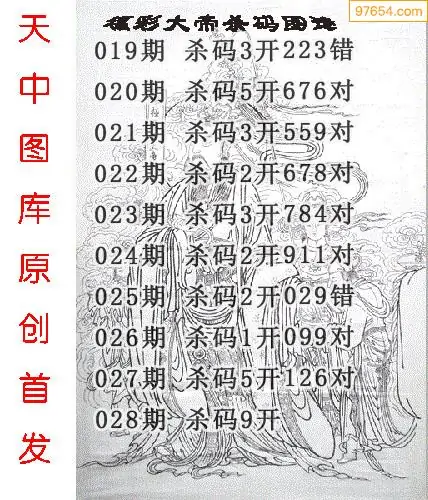 97654.com
福彩大帝杀码图迷
019期 杀码3开223错
020期 杀码5开676对
021期 杀码3开559对
022期 杀码2开678对
023期 杀码3开784对
024期 杀码2开911对
025期 杀码2开029错
026期 杀码1开099对
027期 杀码5开126对
028期 杀码9开
天中图库原创首发